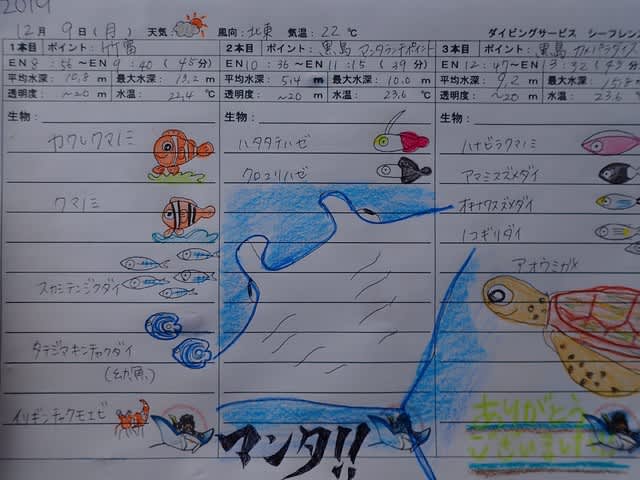 2019
12月 9日(月) 天気: 風向: 北東 気温: 22℃ ダイビングサービス シーフレン
1本目 ポイント: 竹富
EN 8:56〜EN 9:40 (45分)
平均水深: 10,8m 最大水深: 13,2m
透明度: ~20m 水温: 22,4℃
生物:
カクレクマノミ
クマノミ
スカシテンジクダイ
タテジマキンチャクダイ
(幼魚)
イソギンチャクモエビ
2本目 ポイント: 黒島 マンタランチポイント
EN 10:36〜EN 11:15 (39分)
平均水深: 5,4m 最大水深: 10.0m
透明度: ~20m 水温: 23,6℃
生物:
ハタタテハゼ
クロユリハゼ
マンタ!!
3本目 ポイント: 黒島 カメパラダイス
EN 12:47〜EN 13:32 (45分)
平均水深: 9,2m 最大水深: 15,8
透明度: ~20m 水温: 23,6
生物:
ハナビラクマノミ
アマミスズメダイ
オキナワスズメダイ
ノコギリダイ
アオウミガメ
ありがとう
ございました!!